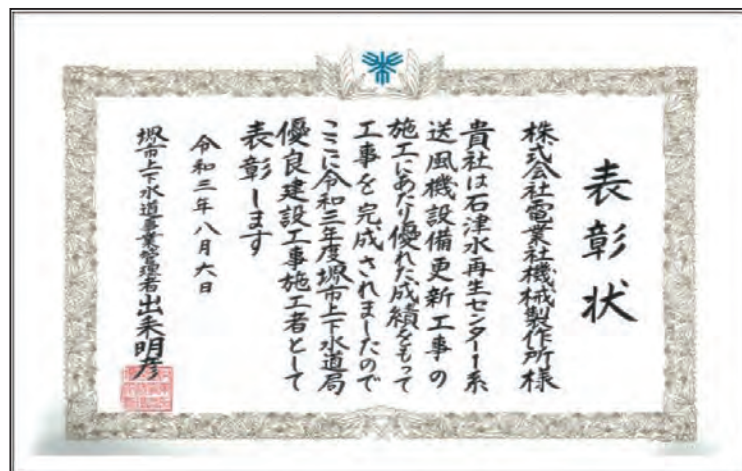 表彰状
株式会社電業社機械製作所様
貴社は石津水再生センター1系
送風機設備更新工事の
施工にあたり優れた成績をもって
工事を完成されましたので
ここに令和三年度堺市上下水道局
優良建設工事施工者として
表彰します
令和三年八月六日
堺市上下水道事業管理者出耒明彦